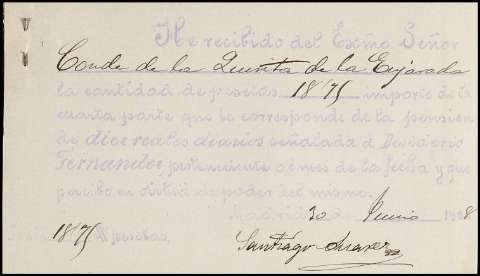 He recibido del Exmo. Señor
Conde de la Quinta de la Enjarada
la cantidad de pesetas 18'75 importe de la
cuarta parte que le corresponde de la pensión
de diez reales diarios señalada á Desiderio
Fernandez, perteneciente al mes de la fecha y que
percibo en virtud de poder del mismo.
Madrid 30 de Junio 1908.
18'75 pesetas.
Santiago Suarez